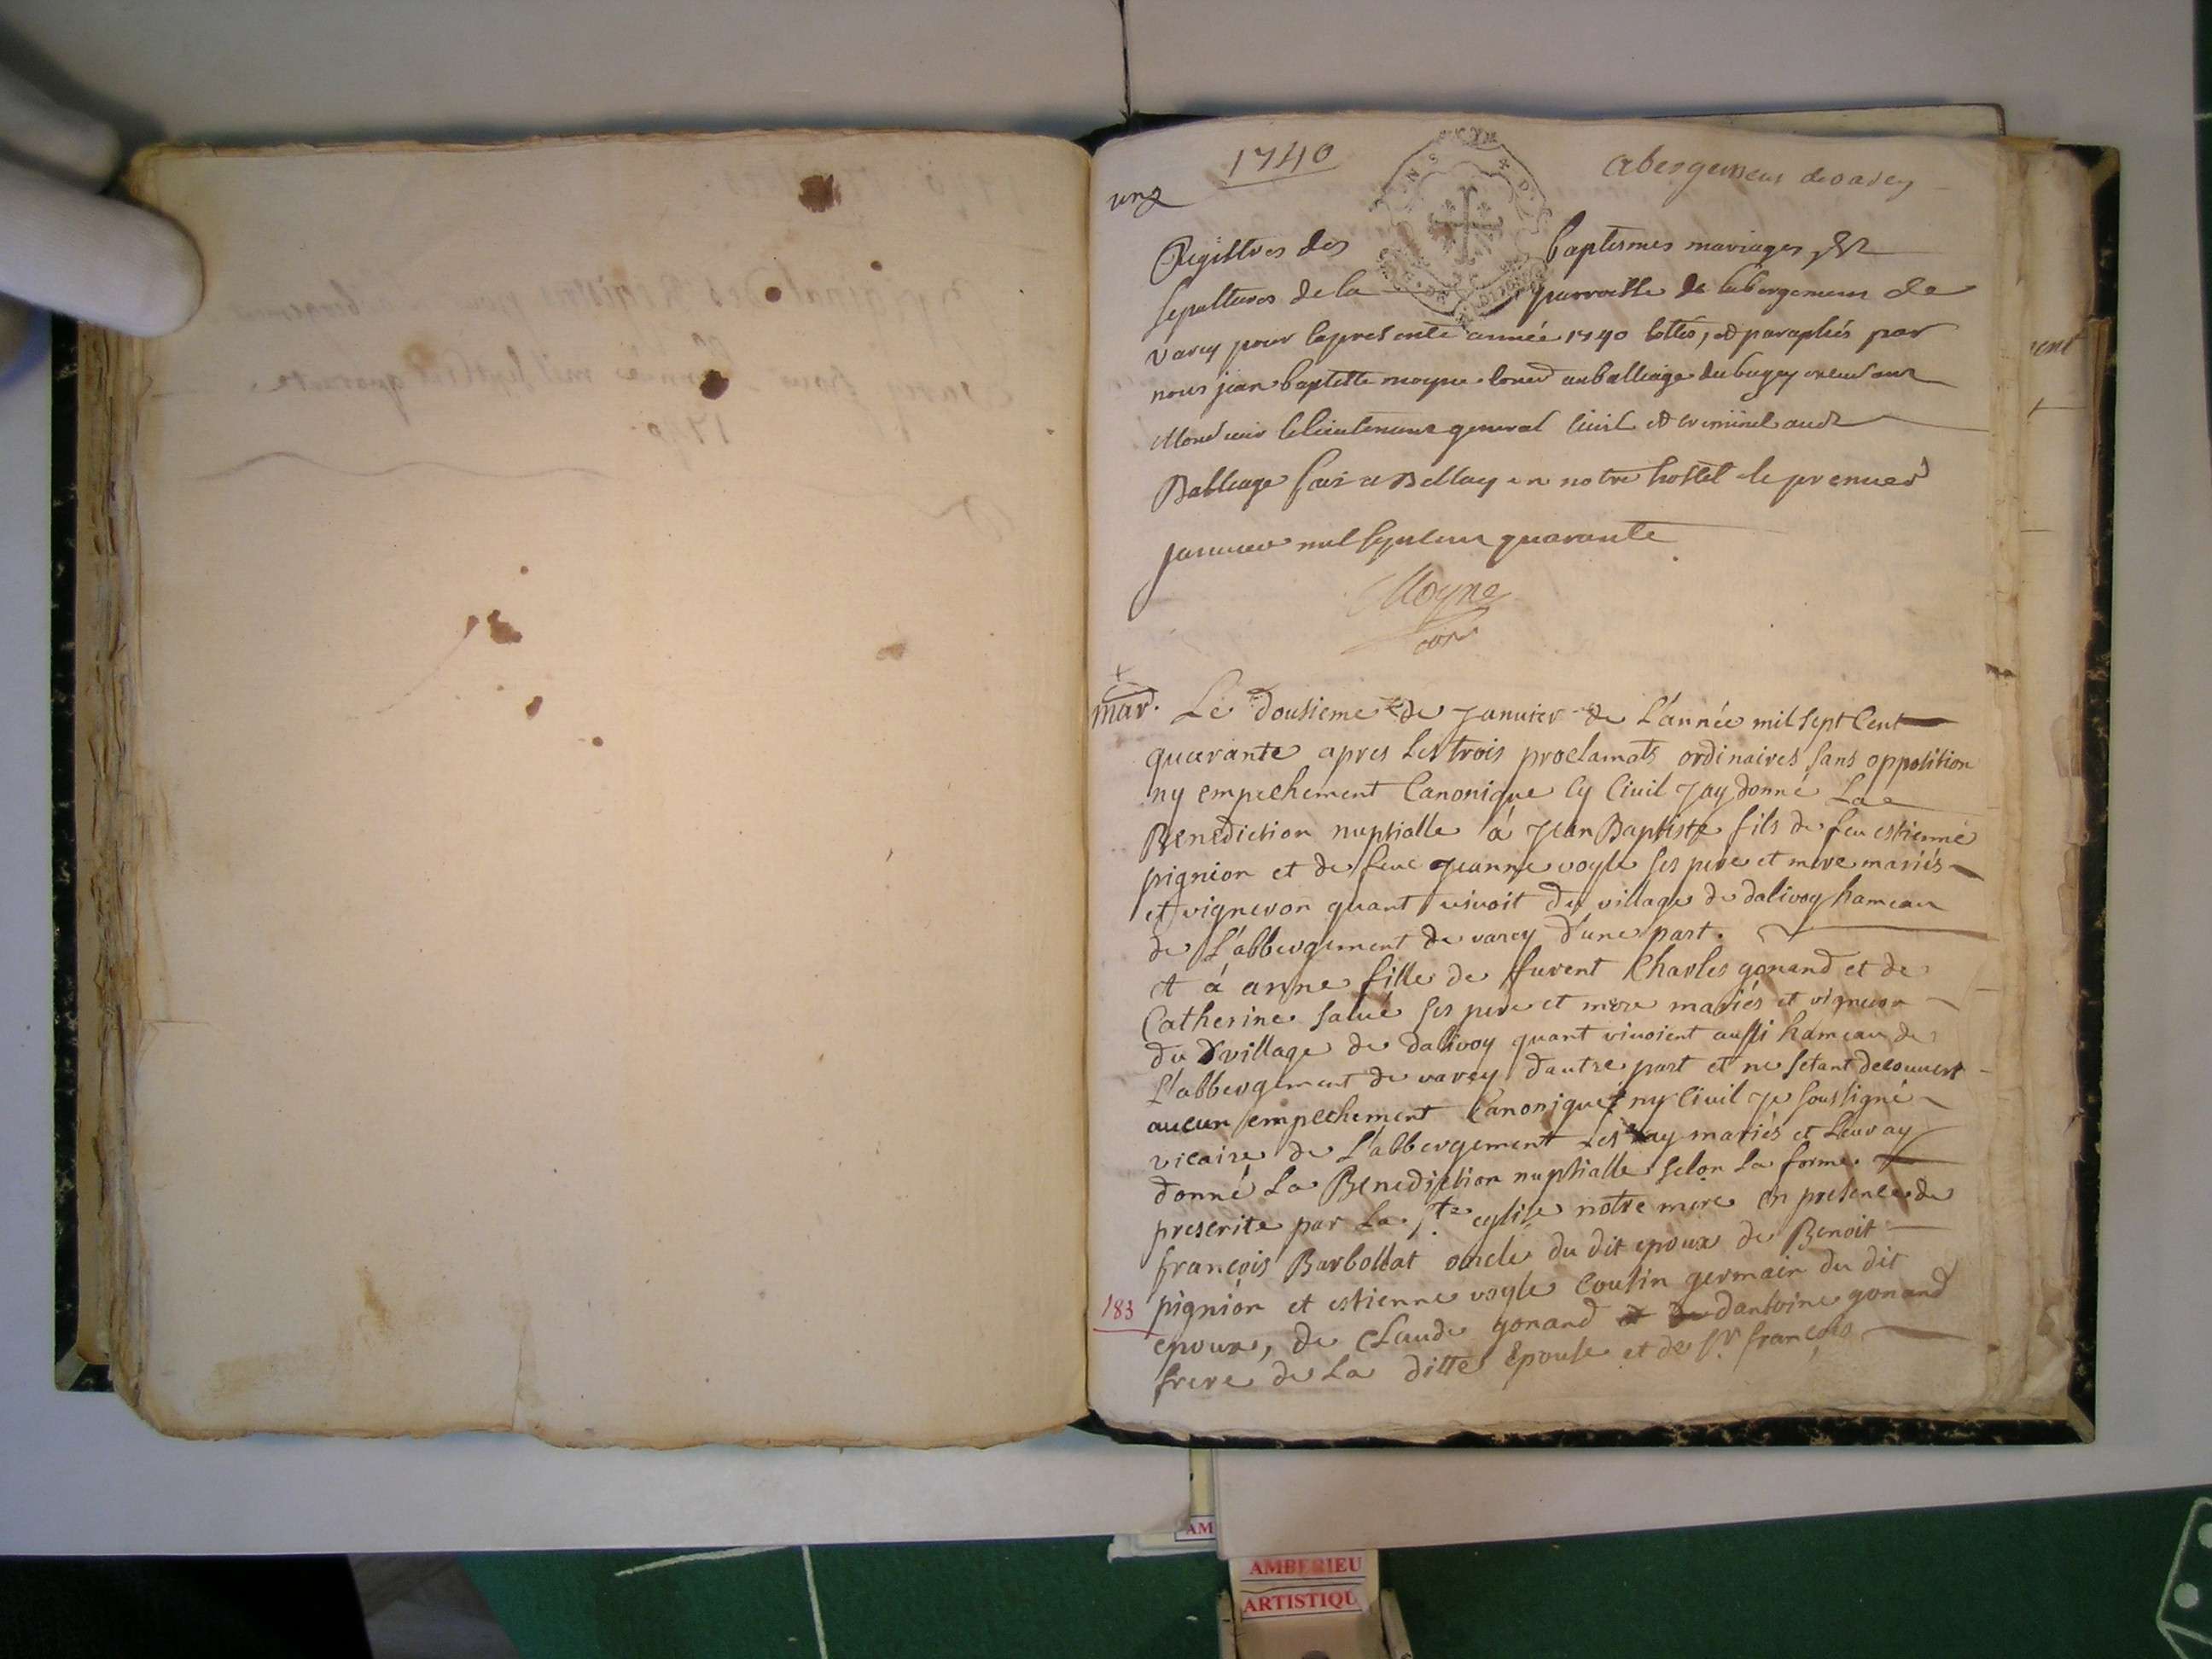 1740
abergement de varey
une
Registres des baptesmes mariages &
sepultures de la parroisse de labergement de
varey pour la presente année 1740 cottés, et paraphés par
nous jean baptiste moyne au balliage du bugey
Monsieur le lieutenant general civil et criminel audt
Balliage fait a Bellay en notre hostel le premier
janvier mil sept cent quarante
Moyne
mar. Le dousieme de Janvier de L'année mil sept Cent
quarante apres Les trois proclamats ordinaires sans opposition
ny empechement Canonique ny Civil Jay donné La
Benediction nuptialle á Jean Baptiste fils de feu estienne
pignion et de feue Jeanne vogle ses pere et mere mariés
et vigneron quant vivoit du village de dalivoy hameau
de L'abbergement de varey d'une part.
et á anne fille de furent Charles gonand et de
Catherine ses pere et mere mariés et vigneron
du village de dalivoy quant vivoient aussi hameau de
L'abbergement de varey d'autre part et ne setant decouvert
aucun empechement Canonique ny Civil Je soussigné
vicaire de L'abbergement Les ay mariés et Leur ay
donné La Benediction nuptialle selon La forme
prescrite par La Ste eglise notre mere en presence de
françois Barbollat oncle du dit epoux de Benoit
pignion et estienne vogle Cousin germain du dit
183
epoux, de Claude gonand et de dantoine gonand
frere de La ditte Epouse et de Sr. françois
ent
AM
AMBERIEU
ARTISTIQU